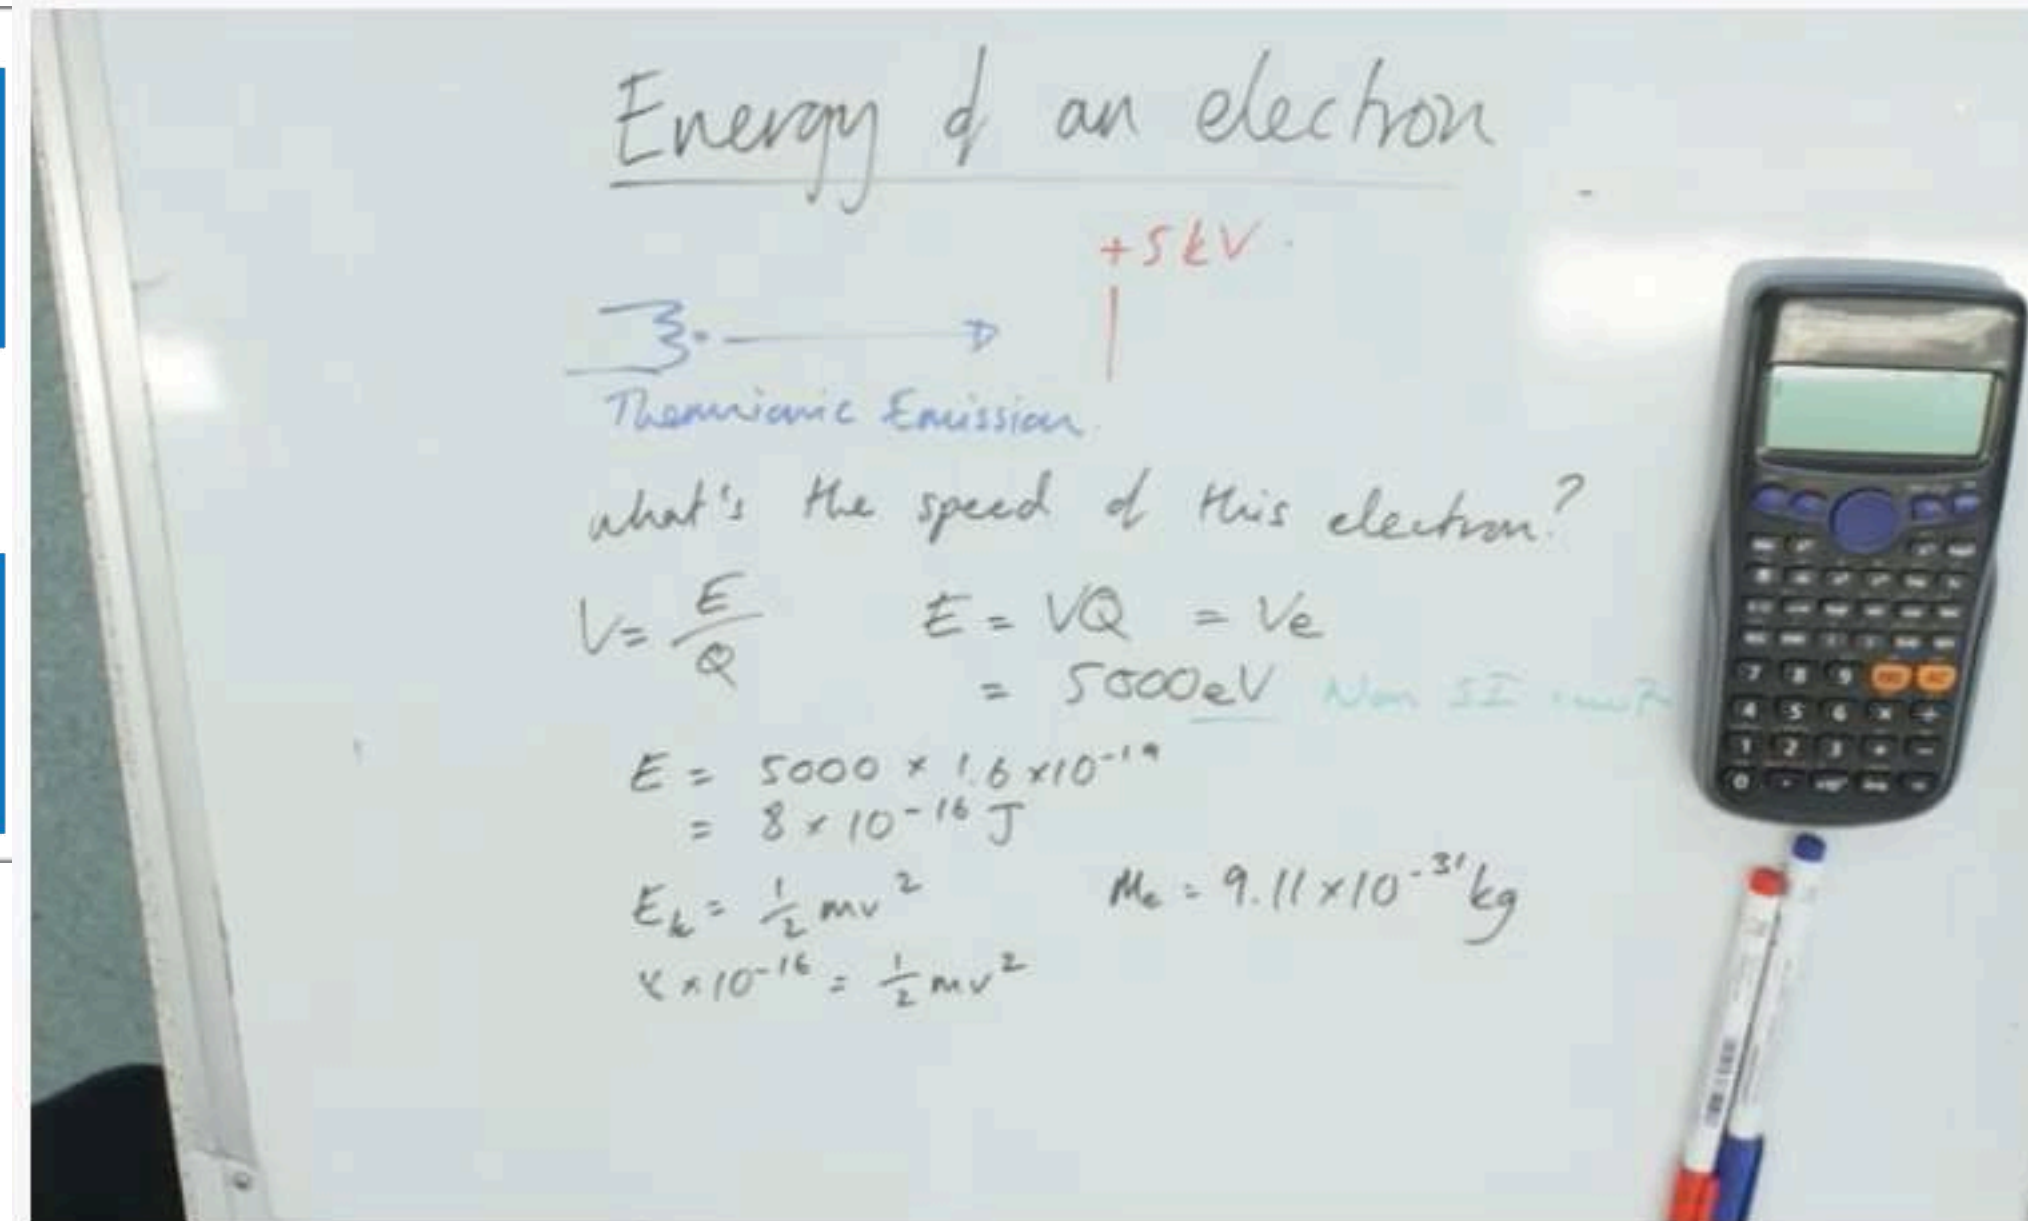 Energy of an electron
+5kV
Thermionic Emission
what's the speed of this electron?
V = E/Q    E = VQ = Ve
= 5000eV Non SI unit
E = 5000 × 1.6 ×10⁻¹⁹
= 8 × 10⁻¹⁶ J
Eₖ = ½ mv²    Mₑ = 9.11 ×10⁻³¹ kg
8 × 10⁻¹⁶ = ½ mv²
7 8 9
4 5 6 × ÷
1 2 3 + −
0 .